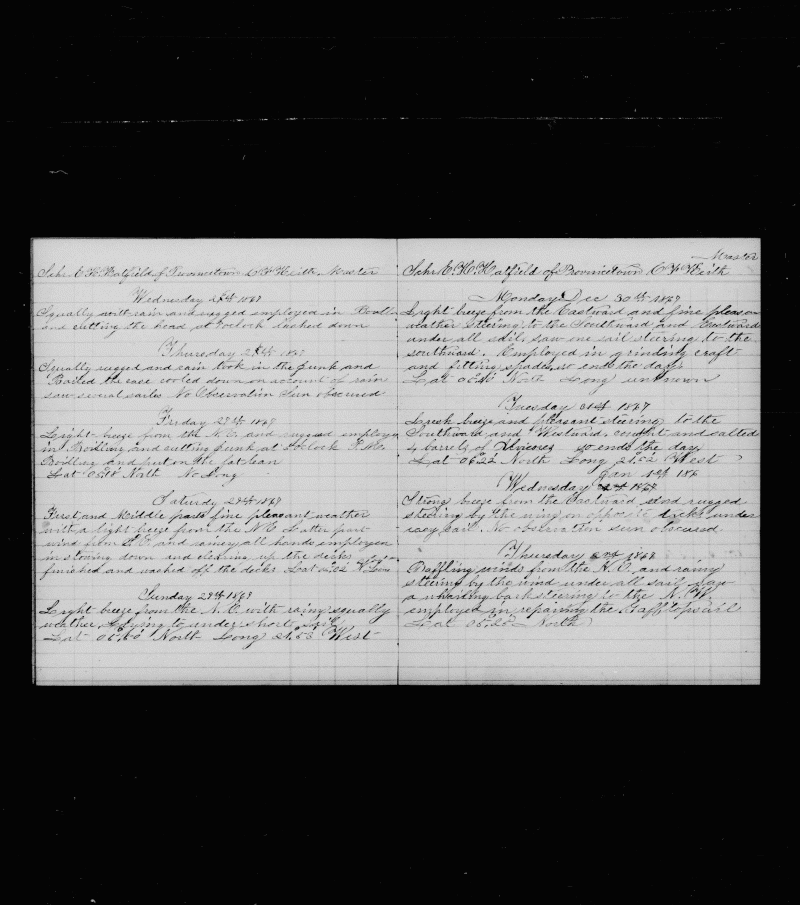 Schr E. H. Hatfield of Provincetown C F Keith Master
Wednesday 25th 1867
Squally with rain and rugged employed in Boiling
and cutting the head at Oclock lashed down
Thursday 26th 1867
Squally rugged and rain took in the junk and
Boiled the case cooled down on account of rain
saw several sailes No Observation Sun obscured
Friday 27th 1867
Light breeze from the N.E. and rugged employed
in Boiling and cutting junk at Oclock P.M.
Boiling and put on the fat lean
Lat North No Long
Saturday 28th 1867
First and Middle parts fine pleasant weather
with a light breeze from the N E Latter part
wind from S.E and rainey all hands employed
in stowing down and clearing up the decks
finished and washed off the decks Lat N Long
Sunday 29th 1867
Light breeze from the N.E with rainy squally
weather Laying to under short sail
Lat 06,50 North Long 21,53 West
Master
Schr E. H. Hatfield of Provincetown C F Keith
Monday Dec 30th 1867
Light breeze from the Eastward and fine pleasant
weather steering to the Southward and Eastward
under all sail, saw one sail steering to the
southward. Employed in grinding craft
and fitting spades, so ends the day
Lat North Long unknown
Tuesday 31st 1867
Fresh breeze and pleasant steering to the
Southward and Westward, caught and salted
4 barrels of so ends the day
Lat 06,22 North Long 21,52 West
Jan 1st 186
Wednesday 1868
Strong breeze from the Eastward and rugged
steering by the wing on opposite tacks under
easy sail. No observation sun obscured
Thursday 2nd 1868
Baffling winds from the N.E. and rainy
steering by the wind under all sail saw
a whaling bark steering to the N. W.
employed in repairing the Gafftopsail
Lat 05,20 North